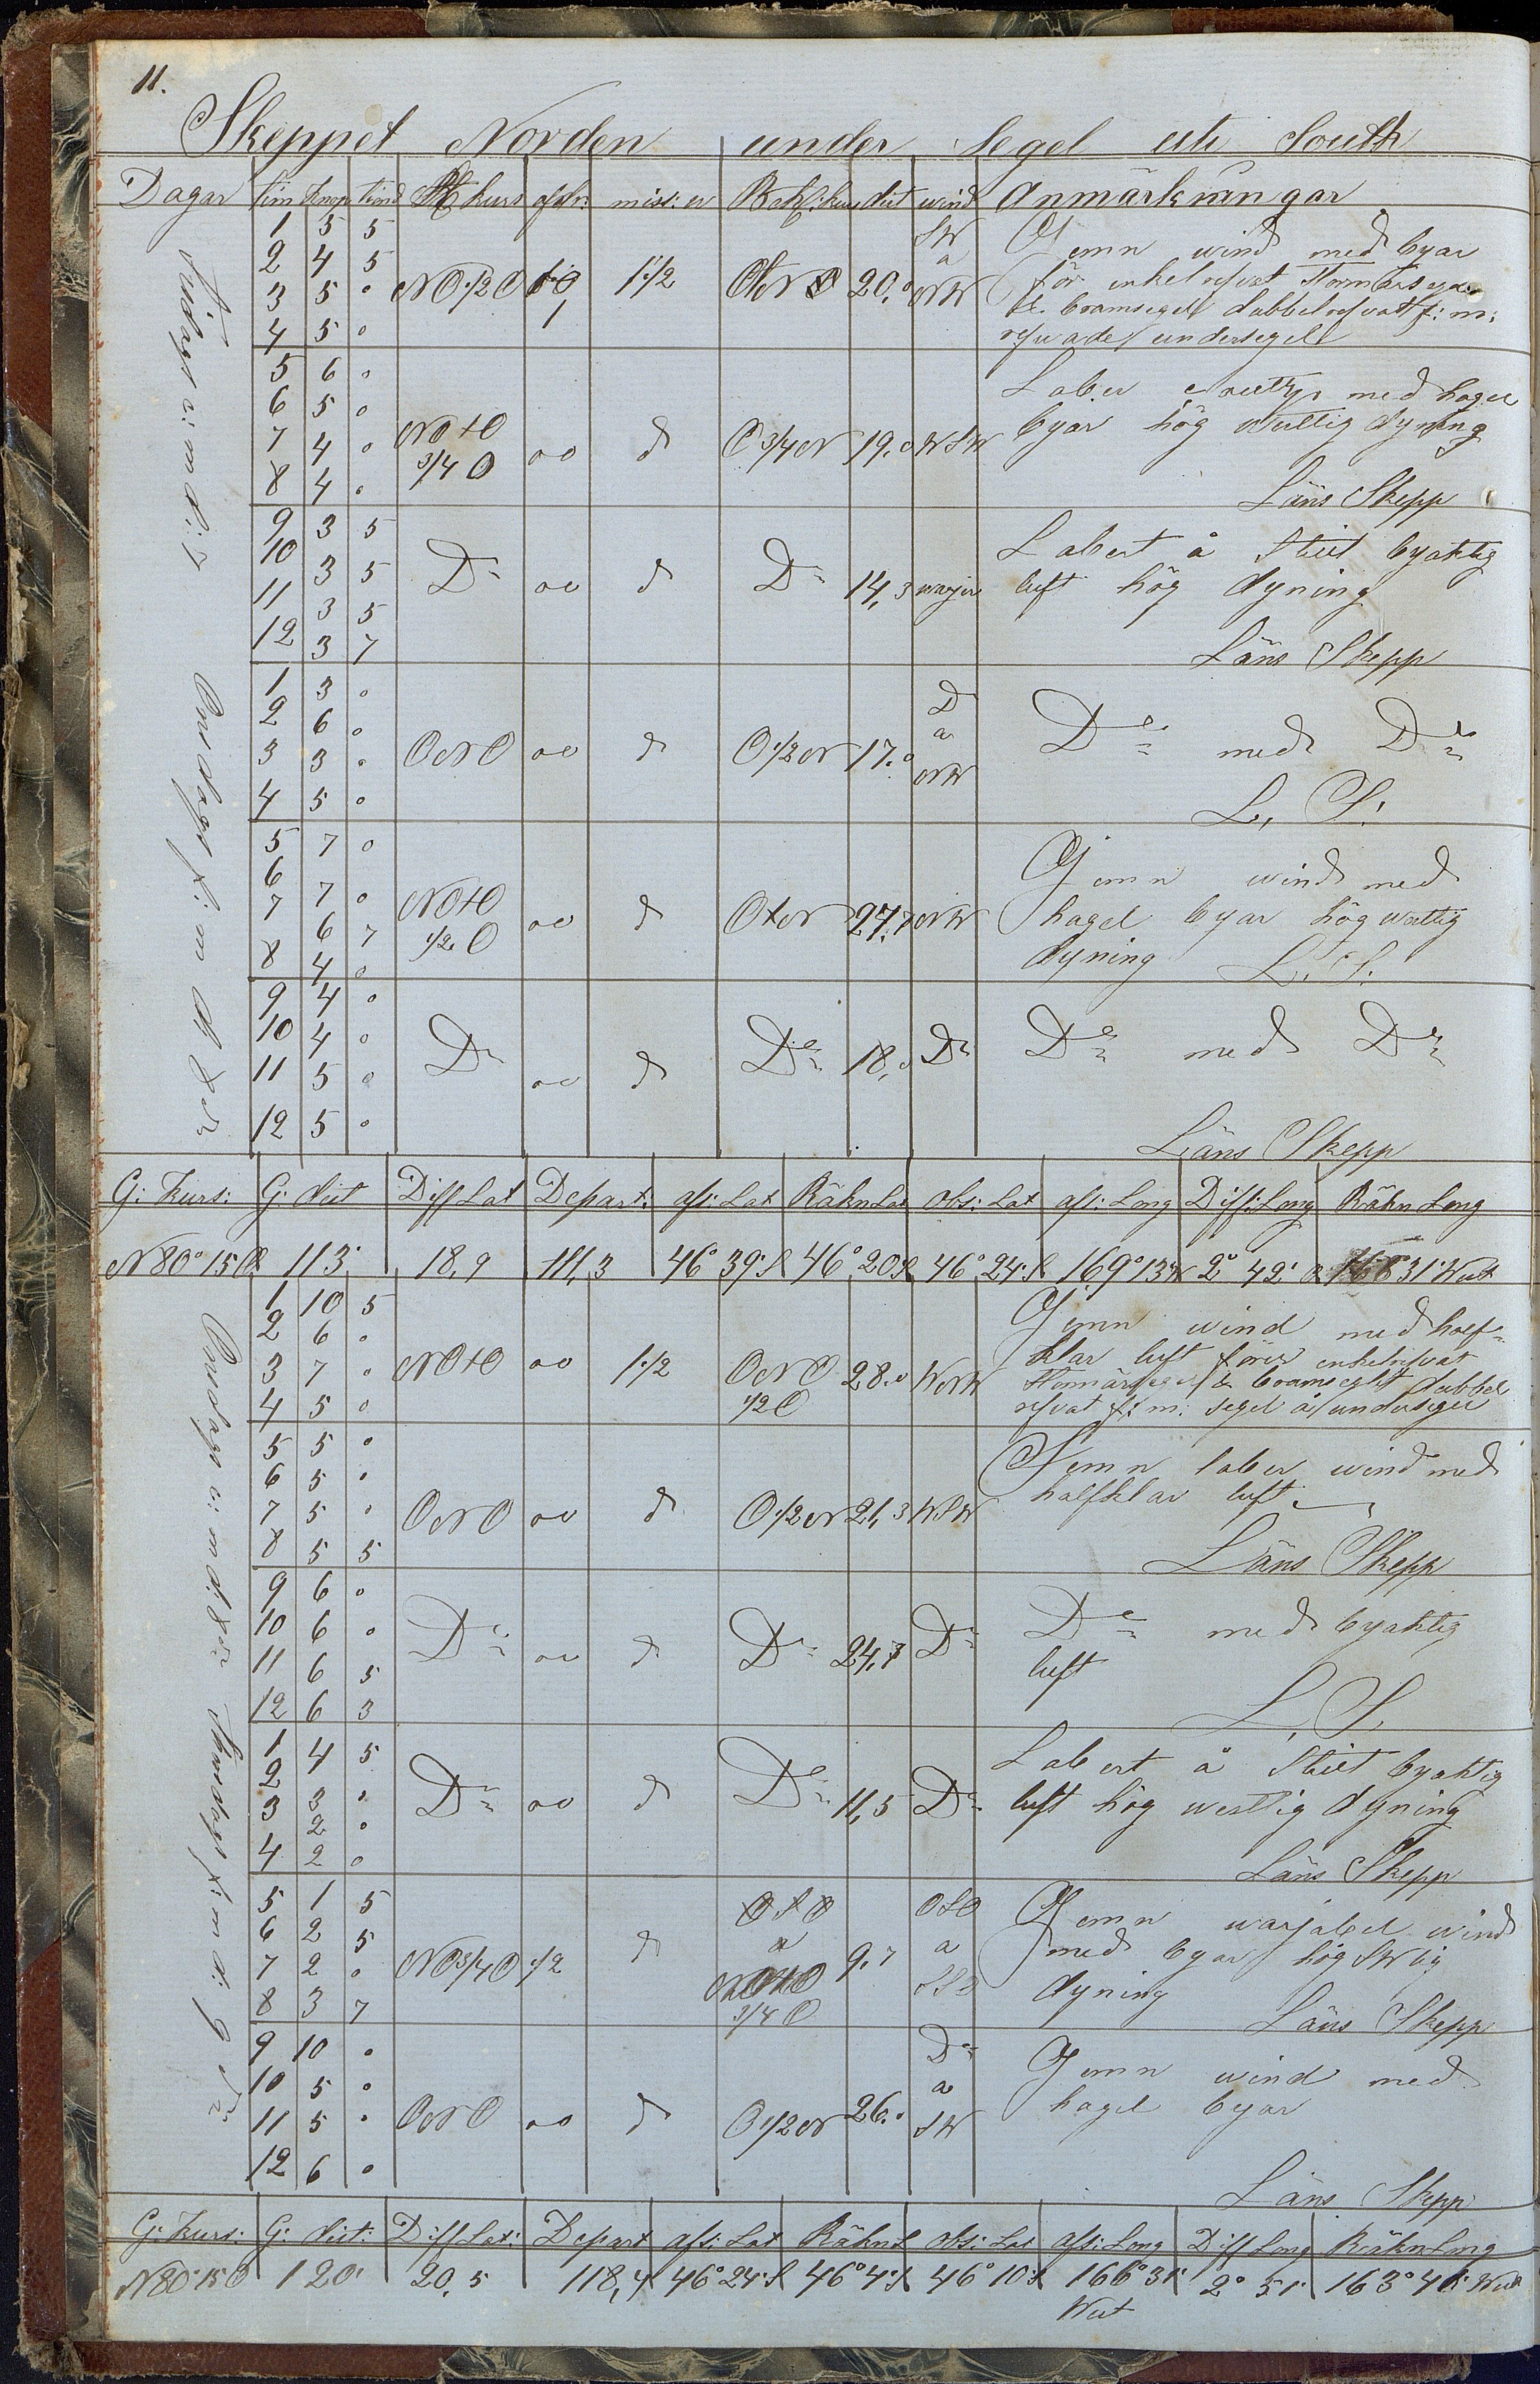 11.
Skeppet Norden under Segel uti South
Dagar tim knop Kurs afdr: miss: Beh: kurs dist wind Anmärkningar
1 5 5
2 4 5
3 5 0
4 5 0
NO 1/2 O 1 1 1/2 OtN 20,0 SW a NW
Jemn wind med byar
för enkelrefvat Stormärsegel
& bramsegel dubbelrefvatt f: m:
refvade undersegel
5 6 0
6 5 0
7 4 0
8 4 0
NOtO 3/4 O oo d O 3/4 N 19,0 WSW
Laber med hagel
byar hög dyning
Läns Skepp
9 3 5
10 3 5
11 3 5
12 3 7
Do oo d Do 14,3
Labert å Stilt byaktig
luft hög dyning
Läns Skepp
Onsdags f: m d 8de
1 3 0
2 6 0
3 3 0
4 5 0
ONO oo d O 1/2 N 17,0 D a NW
De med De
L, S:
5 7 0
6 7 0
7 6 7
8 4 0
NOtO 1/2 O oo d OtN 27,7 NW
Jemn wind med
hagel byar hög westlig
dyning L. S.
9 4 0
10 4 0
11 5 0
12 5 0
Do oo d De 18,0 Do
De med De
Läns Skepp
G: Kurs: G: dist Diff Lat Depart: aft: Lat Räkn Lat obs: Lat aft: Long Diff: Long Räkn Long
N 80° 15 O 113' 18,9 111,3 46° 39' S 46° 20 S 46° 24' S 169° 13' W 2° 42' O 31' West
Onsdags e: m d: 8de
1 10 5
2 6 0
3 7 0
4 5 0
NOtO oo 1 1/2 ONO 1/2 O 28,0 WNW
Jemn wind med half-
klar luft förer enkelrefvat
Stormärsegel & bramseglet dubbel
refvat f: m: segel å undersegel
5 5 0
6 5 0
7 5 0
8 5 5
ONO oo d O 1/2 N 21,3 WSW
Jemn laber wind med
halfklar luft
Läns Skepp
9 6 0
10 6 0
11 6 5
12 6 3
Do oo d Do 24,7 Do
De med byaktig
luft
L, S
Thorsdags f: m d: 9de
1 4 5
2 3 0
3 2 0
4 2 0
Do oo d De 11,5 Do
Labert å Stilt byaktig
luft hög westlig dyning
Läns Skepp
5 1 5
6 2 5
7 2 0
8 3 7
NO 3/4 O 1/2 d OSO a 3/4 O 9,7 OSO a SSO
Jemn warjabel wind
med byar hög SWlig
dyning
Läns Skepp
9 10 0
10 5 0
11 5 0
12 6 0
ONO oo d O 1/2 N 26,0 Do a SW
Jemn wind med
hagel byar
Läns Skepp
G: Kurs: G: dist: Diff Lat: Depart aft: Lat Räkn L obs: Lat aft: Long Diff Long Räkn Long
N 80° 15' O 120' 20,5 118,4 46° 24' S 46° 4' S 46° 10' S 166° 31' West 2° 51' 163° 40' West